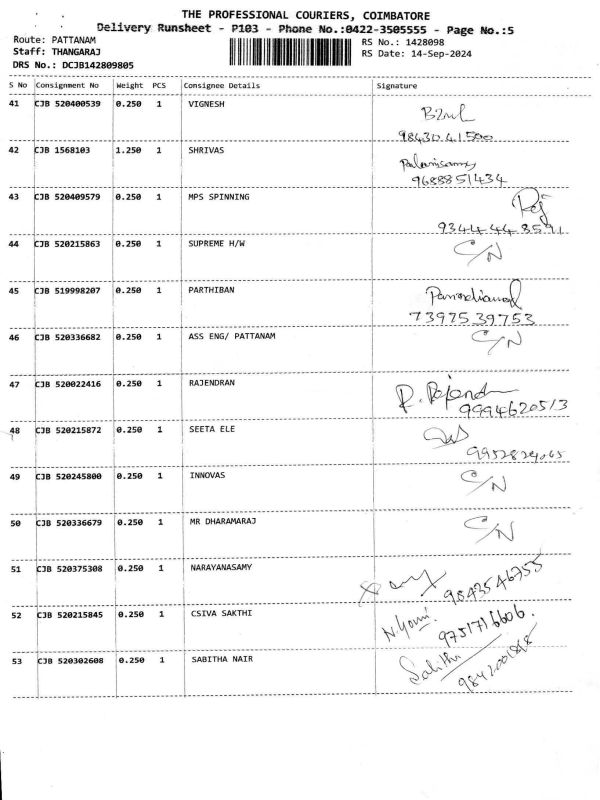 THE PROFESSIONAL COURIERS, COIMBATORE
Delivery Runsheet - P103 - Phone No.:0422-3505555 - Page No.:5
Route: PATTANAM
RS No.: 1428098
Staff: THANGARAJ
RS Date: 14-Sep-2024
DRS No.: DCJB142809805
S No Consignment No Weight PCS Consignee Details Signature
41 CJB 520400539 0.250 1 VIGNESH
98430 41500
42 CJB 1568103 1.250 1 SHRIVAS Palanisamy
9688851434
43 CJB 520409579 0.250 1 MPS SPINNING Raj
9344448591
44 CJB 520215863 0.250 1 SUPREME H/W C/N
45 CJB 519998207 0.250 1 PARTHIBAN
7397539753
46 CJB 520336682 0.250 1 ASS ENG/ PATTANAM C/N
47 CJB 520022416 0.250 1 RAJENDRAN R. Rajendran
9994620513
48 CJB 520215872 0.250 1 SEETA ELE
9952824065
49 CJB 520245800 0.250 1 INNOVAS C/N
50 CJB 520336679 0.250 1 MR DHARAMARAJ C/N
51 CJB 520375308 0.250 1 NARAYANASAMY
9843546755
52 CJB 520215845 0.250 1 CSIVA SAKTHI
9751716606.
53 CJB 520302608 0.250 1 SABITHA NAIR Sabitha